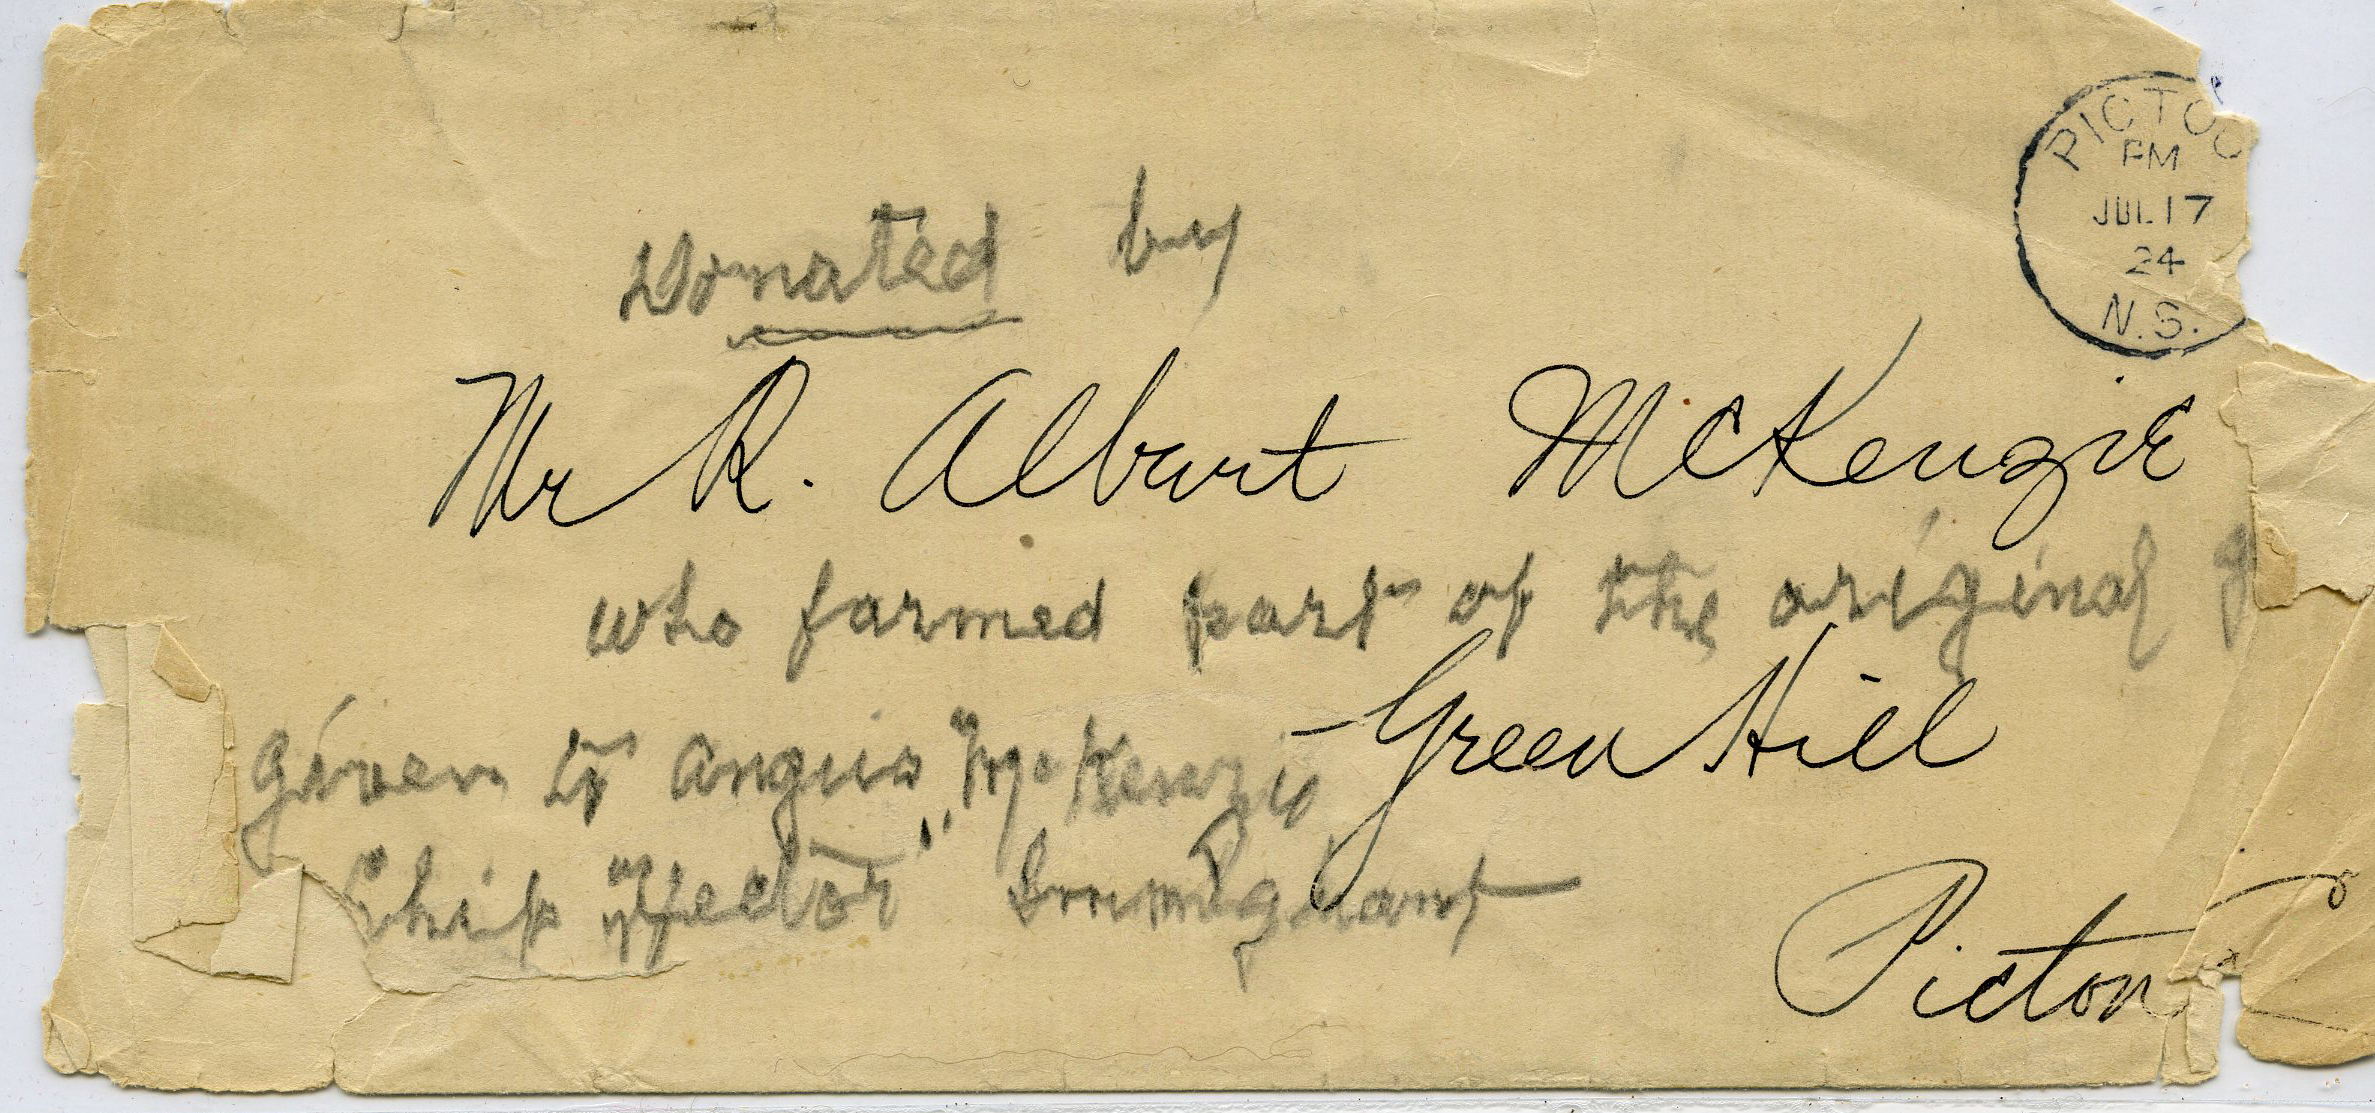 PICTOU
PM
JUL 17
24
N.S.
Donated by
Mr R. Albert McKenzie
who farmed part of the original
Green Hill
given to Angus McKenzie
Ship "Hector" Immigrant
Pictou